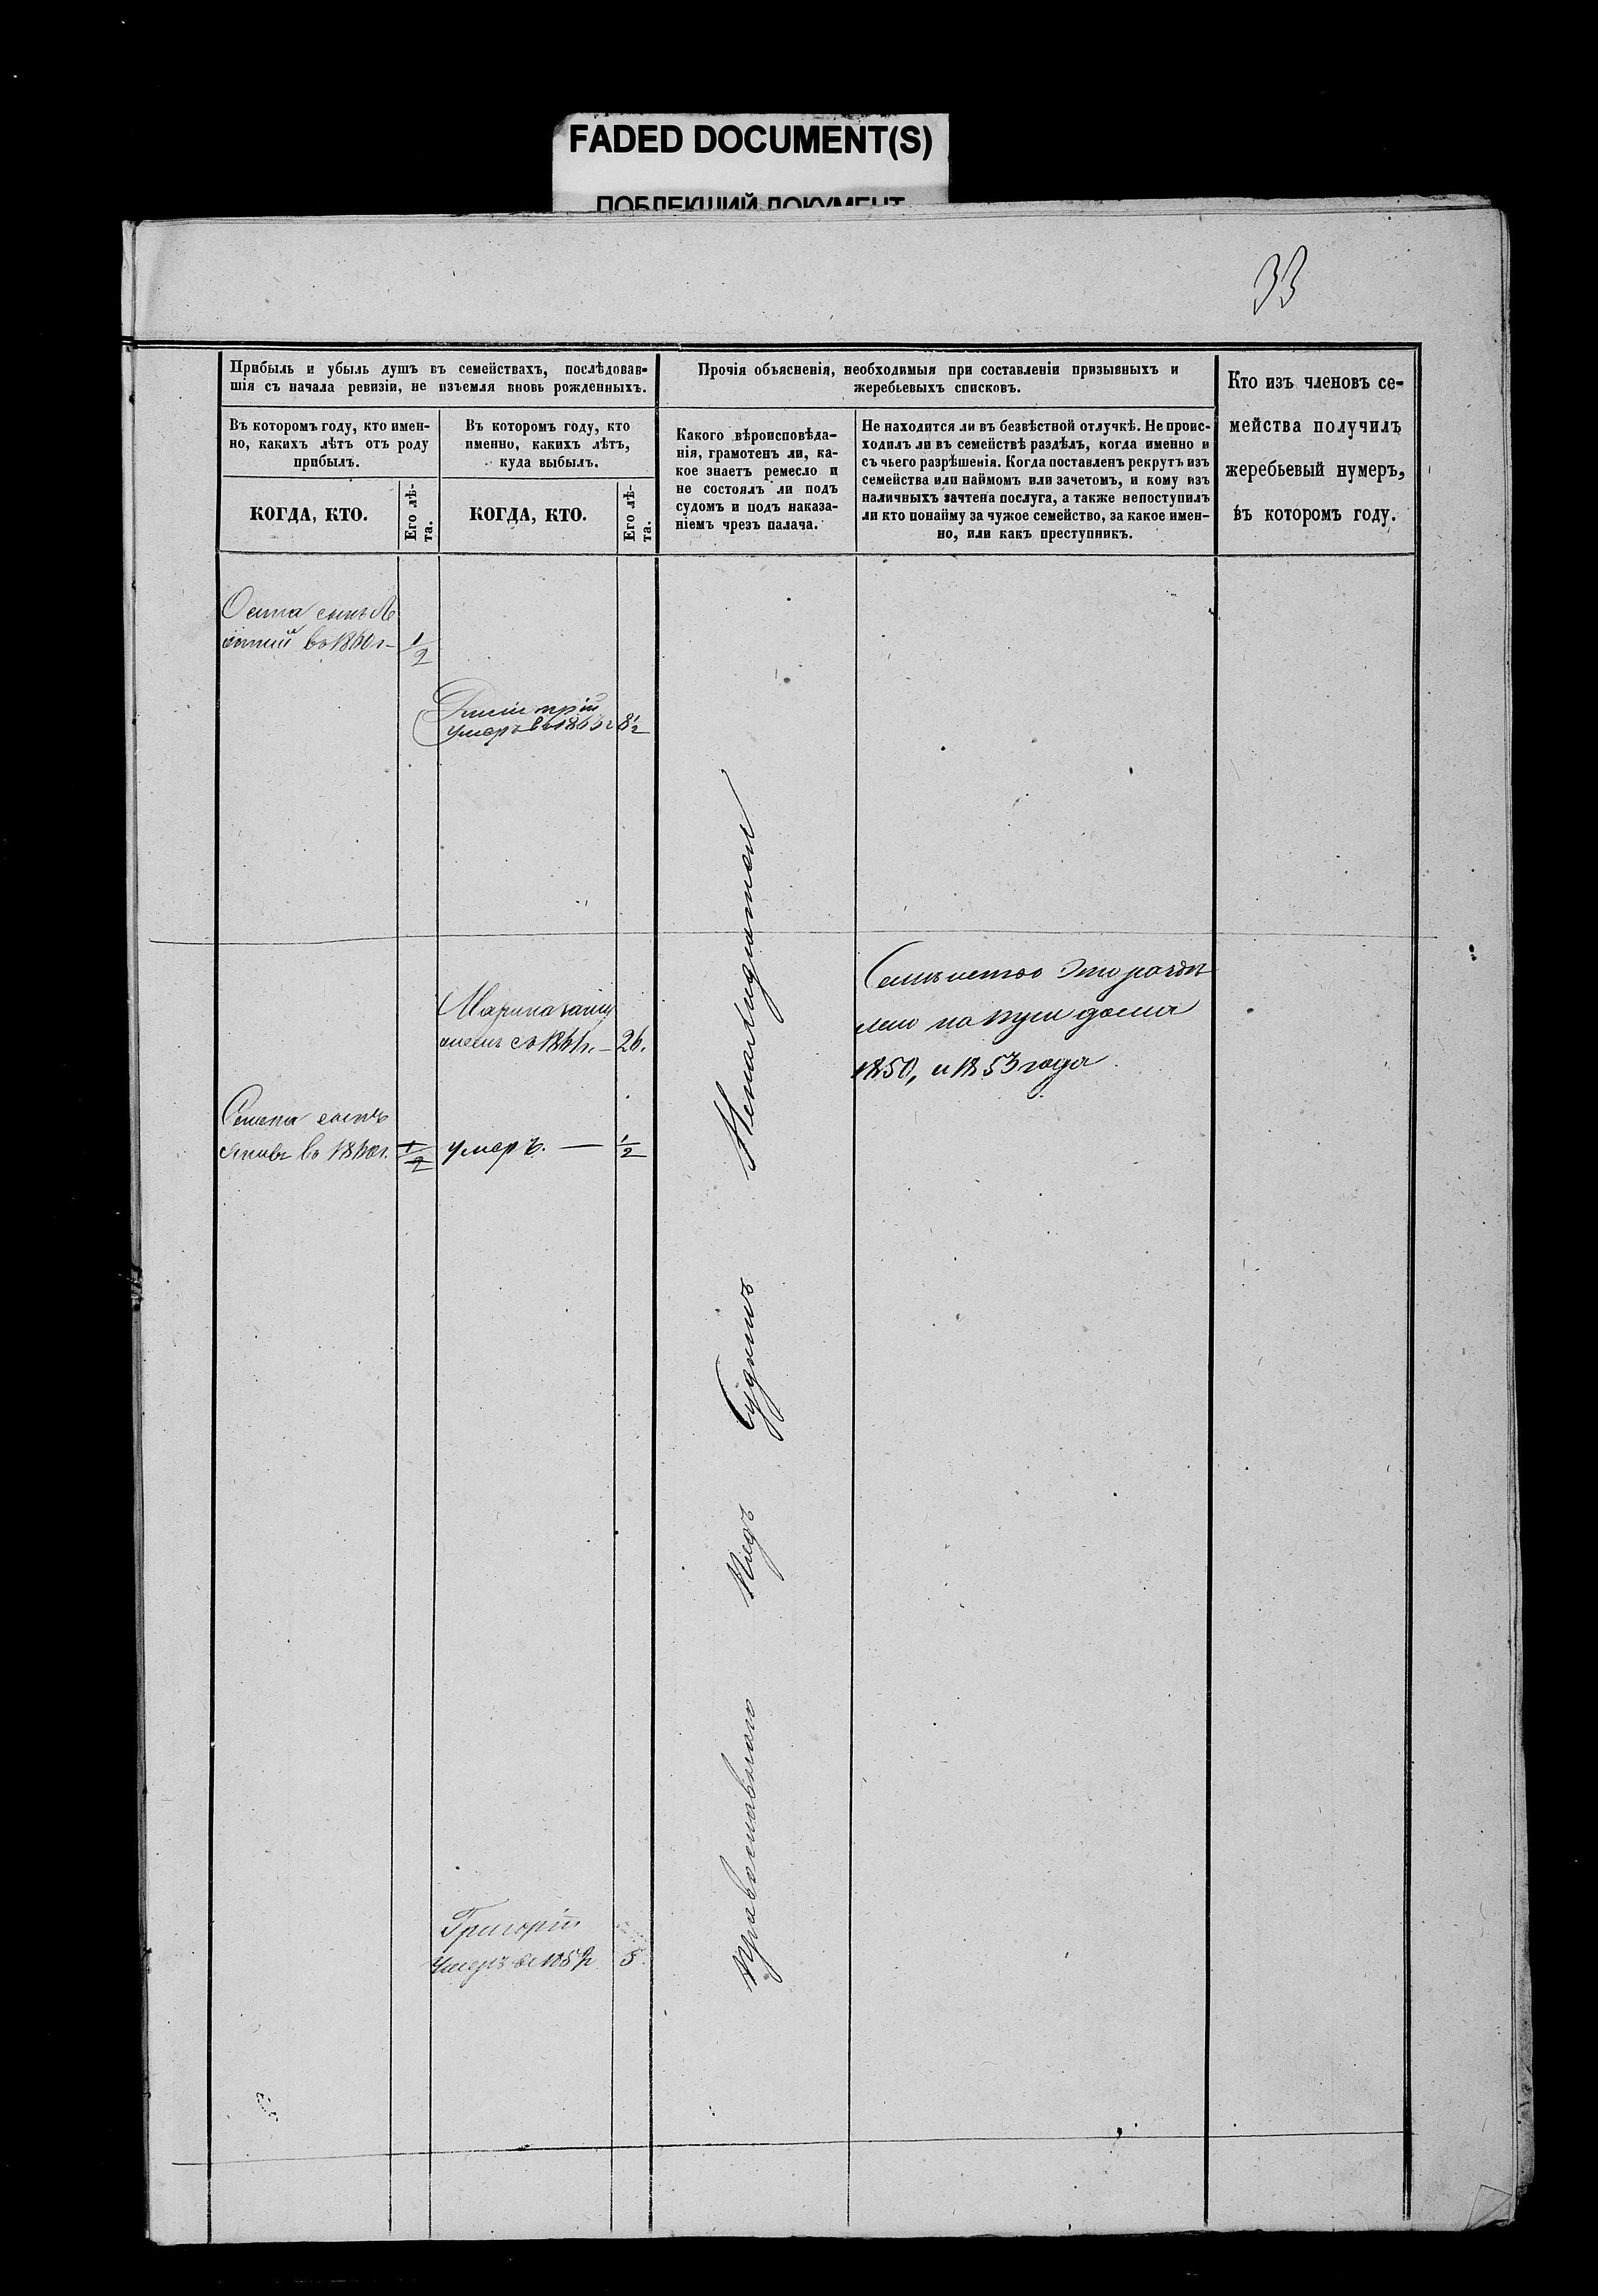 FADED DOCUMENT(S)
ПОБЛЕКШИЙ ДОКУМЕНТ
33
Прибыль и убыль душъ въ семействахъ, послѣдовав-
шія съ начала ревизіи, не изъемля вновь рожденныхъ.
Въ которомъ году, кто имен-
но, какихъ лѣтъ отъ роду
прибылъ.
КОГДА, КТО.
Его лѣ-
та.
Въ которомъ году, кто
именно, какихъ лѣтъ,
куда выбылъ.
КОГДА, КТО.
Его лѣ-
та.
Прочія объясненія, необходимыя при составленіи призывныхъ и
жеребьевыхъ списковъ.
Какого вѣроисповѣда-
нія, грамотенъ ли, ка-
кое знаетъ ремесло и
не состоялъ ли подъ
судомъ и подъ наказа-
ніемъ чрезъ палача.
Не находится ли въ безвѣстной отлучкѣ. Не проис-
ходилъ ли въ семействѣ раздѣлъ, когда именно и
съ чьего разрѣшенія. Когда поставленъ рекрутъ изъ
семейства или наймомъ или зачетомъ, и кому изъ
наличныхъ зачтена послуга, а также непоступилъ
ли кто понайму за чужое семейство, за какое имен-
но, или какъ преступникъ.
Кто изъ членовъ се-
мейства получилъ
жеребьевый нумеръ,
въ которомъ году.
сынъ
въ 1860 г. 1/2
Димитрій
умеръ въ 1863 г 8 1/2
Марина
1861 г. — 26.
сынъ
въ 1860 г. 1/2 умеръ. — 1/2
Григорій
умеръ 5
Православнаго подъ Судомъ
Семейство это
дома
1850, и 1853 года